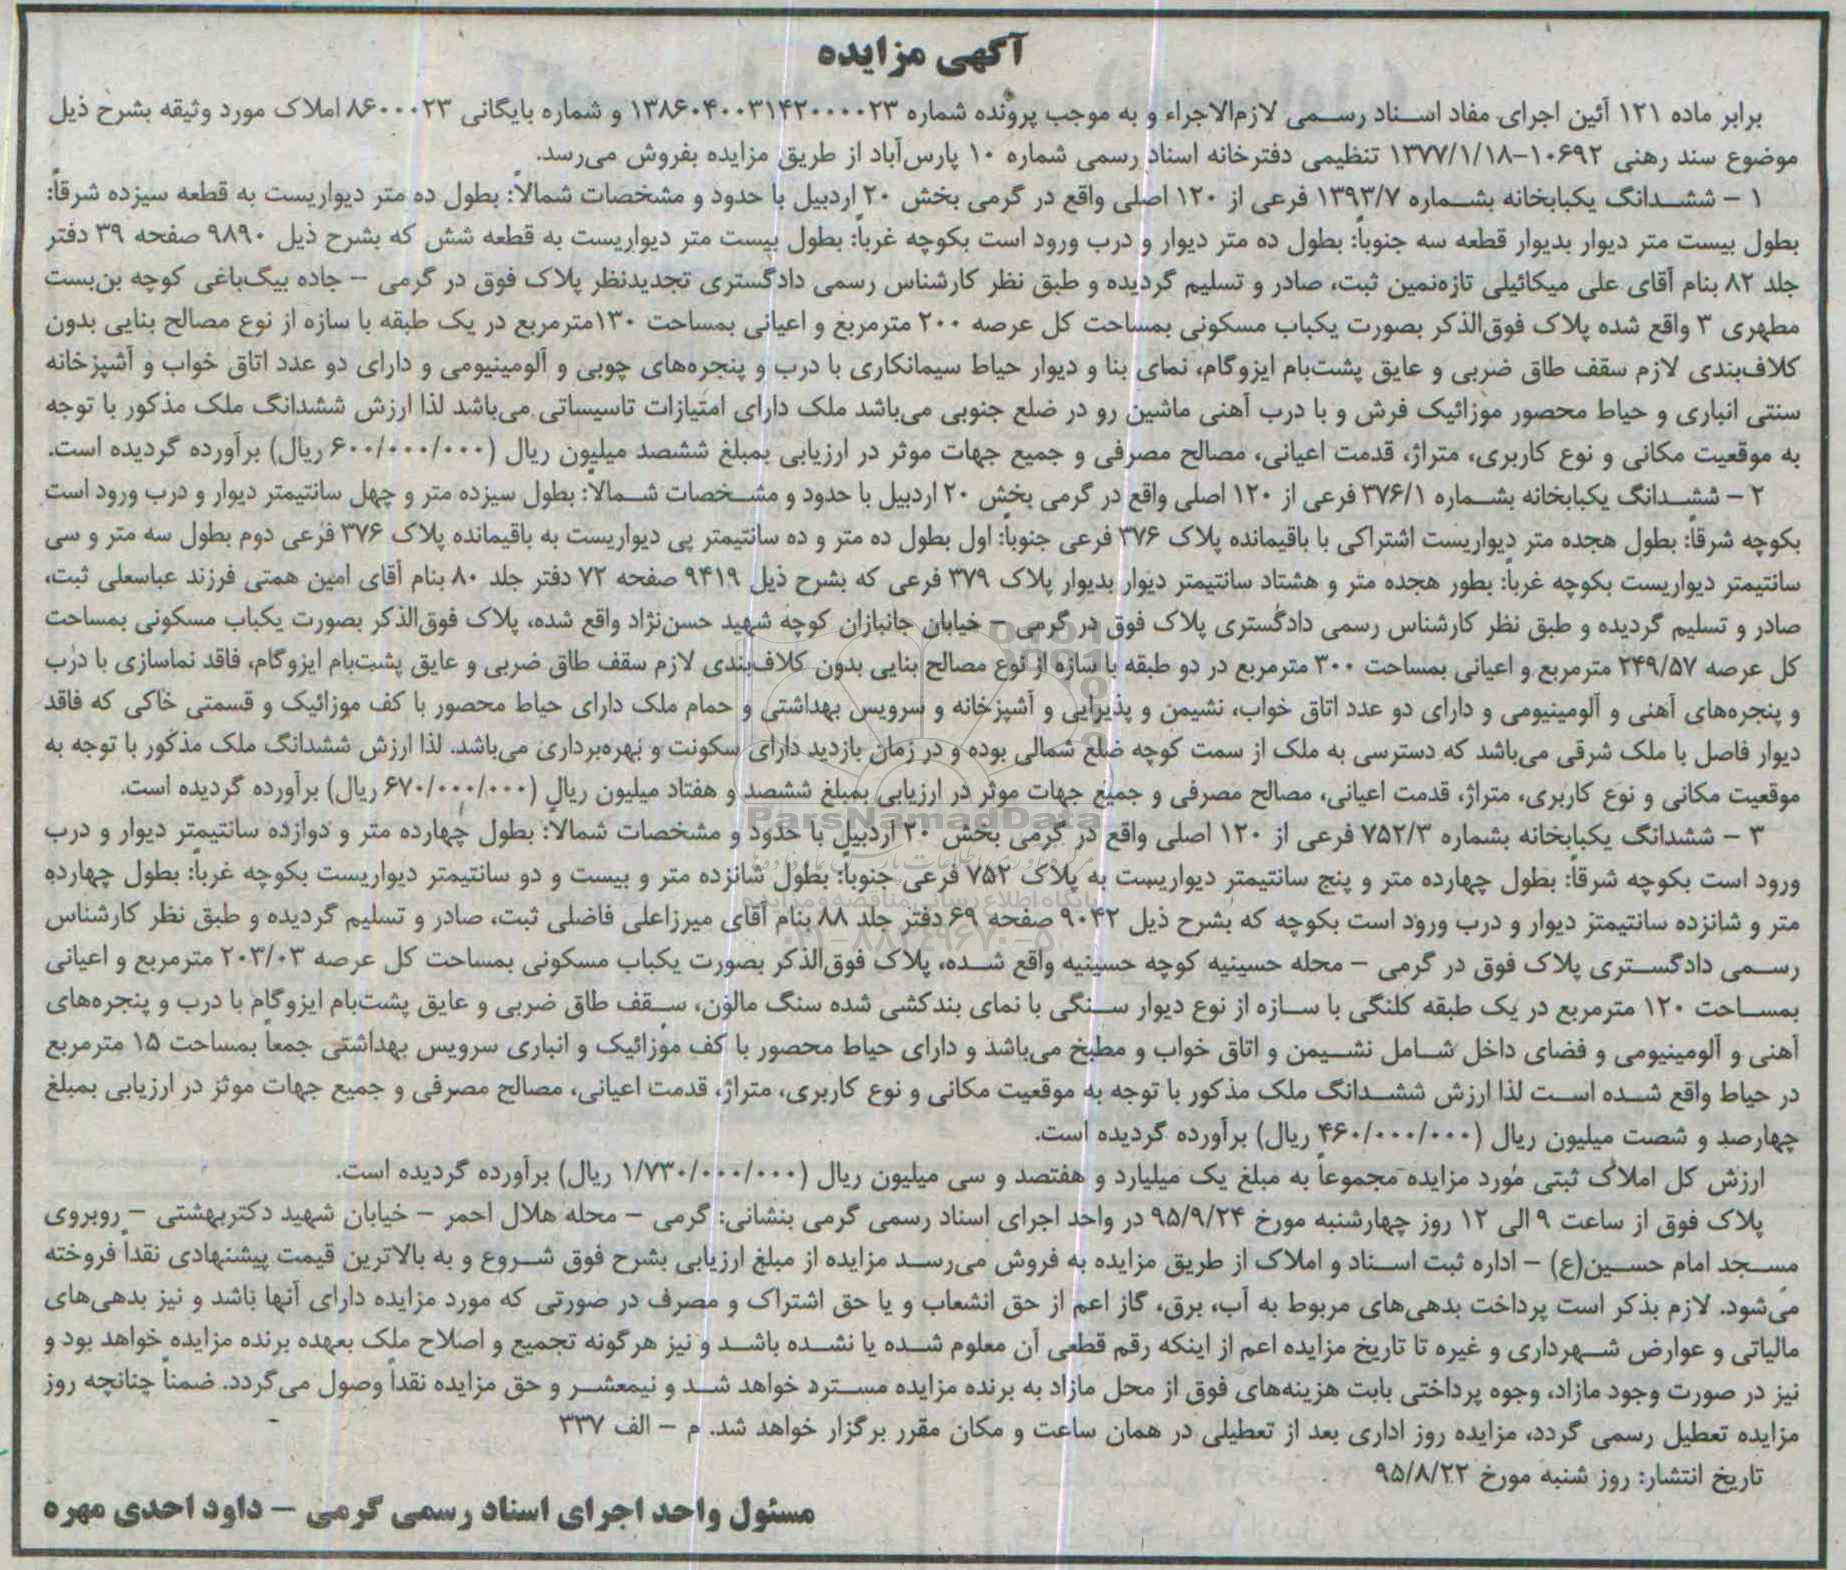 آگهی مزایده
برابر ماده ۱۲۱ آئین اجرای مفاد اسناد رسمی لازم‌الاجراء و به موجب پرونده شماره ۱۳۸۶۰۴۰۰۳۱۴۲۰۰۰۰۲۳ و شماره بایگانی ۸۶۰۰۰۲۳ املاک مورد وثیقه بشرح ذیل
موضوع سند رهنی ۱۰۶۹۲-۱۳۷۷/۱/۱۸ تنظیمی دفترخانه اسناد رسمی شماره ۱۰ پارس‌آباد از طریق مزایده بفروش می‌رسد.
۱ - ششدانگ یکبابخانه بشماره ۱۳۹۳/۷ فرعی از ۱۲۰ اصلی واقع در گرمی بخش ۲۰ اردبیل با حدود و مشخصات شمالاً: بطول ده متر دیواریست به قطعه سیزده شرقاً:
بطول بیست متر دیوار بدیوار قطعه سه جنوباً: بطول ده متر دیوار و درب ورود است بکوچه غرباً: بطول بیست متر دیواریست به قطعه شش که بشرح ذیل ۹۸۹۰ صفحه ۳۹ دفتر
جلد ۸۲ بنام آقای علی میکائیلی تازه‌نمین ثبت، صادر و تسلیم گردیده و طبق نظر کارشناس رسمی دادگستری تجدیدنظر پلاک فوق در گرمی - جاده بیگ‌باغی کوچه بن‌بست
مطهری ۳ واقع شده پلاک فوق‌الذکر بصورت یکباب مسکونی بمساحت کل عرصه ۲۰۰ مترمربع و اعیانی بمساحت ۱۳۰مترمربع در یک طبقه با سازه از نوع مصالح بنایی بدون
کلاف‌بندی لازم سقف طاق ضربی و عایق پشت‌بام ایزوگام، نمای بنا و دیوار حیاط سیمانکاری با درب و پنجره‌های چوبی و آلومینیومی و دارای دو عدد اتاق خواب و آشپزخانه
سنتی انباری و حیاط محصور موزائیک فرش و با درب آهنی ماشین رو در ضلع جنوبی می‌باشد ملک دارای امتیازات تاسیساتی می‌باشد لذا ارزش ششدانگ ملک مذکور با توجه
به موقعیت مکانی و نوع کاربری، متراژ، قدمت اعیانی، مصالح مصرفی و جمیع جهات موثر در ارزیابی بمبلغ ششصد میلیون ریال (۶۰۰/۰۰۰/۰۰۰ ریال) برآورده گردیده است.
۲ - ششدانگ یکبابخانه بشماره ۳۷۶/۱ فرعی از ۱۲۰ اصلی واقع در گرمی بخش ۲۰ اردبیل با حدود و مشخصات شمالاً: بطول سیزده متر و چهل سانتیمتر دیوار و درب ورود است
بکوچه شرقاً: بطول هجده متر دیواریست اشتراکی با باقیمانده پلاک ۳۷۶ فرعی جنوباً: اول بطول ده متر و ده سانتیمتر پی دیواریست به باقیمانده پلاک ۳۷۶ فرعی دوم بطول سه متر و سی
سانتیمتر دیواریست بکوچه غرباً: بطور هجده متر و هشتاد سانتیمتر دیوار بدیوار پلاک ۳۷۹ فرعی که بشرح ذیل ۹۴۱۹ صفحه ۷۲ دفتر جلد ۸۰ بنام آقای امین همتی فرزند عباسعلی ثبت،
صادر و تسلیم گردیده و طبق نظر کارشناس رسمی دادگستری پلاک فوق در گرمی - خیابان جانبازان کوچه شهید حسن‌نژاد واقع شده، پلاک فوق‌الذکر بصورت یکباب مسکونی بمساحت
کل عرصه ۲۴۹/۵۷ مترمربع و اعیانی بمساحت ۳۰۰ مترمربع در دو طبقه با سازه از نوع مصالح بنایی بدون کلاف‌بندی لازم سقف طاق ضربی و عایق پشت‌بام ایزوگام، فاقد نماسازی با درب
و پنجره‌های آهنی و آلومینیومی و دارای دو عدد اتاق خواب، نشیمن و پذیرایی و آشپزخانه و سرویس بهداشتی و حمام ملک دارای حیاط محصور با کف موزائیک و قسمتی خاکی که فاقد
دیوار فاصل با ملک شرقی می‌باشد که دسترسی به ملک از سمت کوچه ضلع شمالی بوده و در زمان بازدید دارای سکونت و بهره‌برداری می‌باشد. لذا ارزش ششدانگ ملک مذکور با توجه به
موقعیت مکانی و نوع کاربری، متراژ، قدمت اعیانی، مصالح مصرفی و جمیع جهات موثر در ارزیابی بمبلغ ششصد و هفتاد میلیون ریال (۶۷۰/۰۰۰/۰۰۰ ریال) برآورده گردیده است.
ParsNamadData
۳ - ششدانگ یکبابخانه بشماره ۷۵۲/۳ فرعی از ۱۲۰ اصلی واقع در گرمی بخش ۲۰ اردبیل با حدود و مشخصات شمالاً: بطول چهارده متر و دوازده سانتیمتر دیوار و درب
ورود است بکوچه شرقاً: بطول چهارده متر و پنج سانتیمتر دیواریست به پلاک ۷۵۲ فرعی جنوباً: بطول شانزده متر و بیست و دو سانتیمتر دیواریست بکوچه غرباً: بطول چهارده
پایگاه اطلاع رسانی مناقصه و مزایده
متر و شانزده سانتیمتر دیوار و درب ورود است بکوچه که بشرح ذیل ۹۰۴۲ صفحه ۶۹ دفتر جلد ۸۸ بنام آقای میرزاعلی فاضلی ثبت، صادر و تسلیم گردیده و طبق نظر کارشناس
رسمی دادگستری پلاک فوق در گرمی - محله حسینیه کوچه حسینیه واقع شده، پلاک فوق‌الذکر بصورت یکباب مسکونی بمساحت کل عرصه ۲۰۳/۰۳ مترمربع و اعیانی
بمساحت ۱۲۰ مترمربع در یک طبقه کلنگی با سازه از نوع دیوار سنگی با نمای بندکشی شده سنگ مالون، سقف طاق ضربی و عایق پشت‌بام ایزوگام با درب و پنجره‌های
آهنی و آلومینیومی و فضای داخل شامل نشیمن و اتاق خواب و مطبخ می‌باشد و دارای حیاط محصور با کف موزائیک و انباری سرویس بهداشتی جمعاً بمساحت ۱۵ مترمربع
در حیاط واقع شده است لذا ارزش ششدانگ ملک مذکور با توجه به موقعیت مکانی و نوع کاربری، متراژ، قدمت اعیانی، مصالح مصرفی و جمیع جهات موثر در ارزیابی بمبلغ
چهارصد و شصت میلیون ریال (۴۶۰/۰۰۰/۰۰۰ ریال) برآورده گردیده است.
ارزش کل املاک ثبتی مورد مزایده مجموعاً به مبلغ یک میلیارد و هفتصد و سی میلیون ریال (۱/۷۳۰/۰۰۰/۰۰۰ ریال) برآورده گردیده است.
پلاک فوق از ساعت ۹ الی ۱۲ روز چهارشنبه مورخ ۹۵/۹/۲۴ در واحد اجرای اسناد رسمی گرمی بنشانی: گرمی - محله هلال احمر - خیابان شهید دکتربهشتی - روبروی
مسجد امام حسین(ع) - اداره ثبت اسناد و املاک از طریق مزایده به فروش می‌رسد مزایده از مبلغ ارزیابی بشرح فوق شروع و به بالاترین قیمت پیشنهادی نقداً فروخته
می‌شود. لازم بذکر است پرداخت بدهی‌های مربوط به آب، برق، گاز اعم از حق انشعاب و یا حق اشتراک و مصرف در صورتی که مورد مزایده دارای آنها باشد و نیز بدهی‌های
مالیاتی و عوارض شهرداری و غیره تا تاریخ مزایده اعم از اینکه رقم قطعی آن معلوم شده یا نشده باشد و نیز هرگونه تجمیع و اصلاح ملک بعهده برنده مزایده خواهد بود و
نیز در صورت وجود مازاد، وجوه پرداختی بابت هزینه‌های فوق از محل مازاد به برنده مزایده مسترد خواهد شد و نیمعشر و حق مزایده نقداً وصول می‌گردد. ضمناً چنانچه روز
مزایده تعطیل رسمی گردد، مزایده روز اداری بعد از تعطیلی در همان ساعت و مکان مقرر برگزار خواهد شد. م - الف ۳۳۷
تاریخ انتشار: روز شنبه مورخ ۹۵/۸/۲۲
مسئول واحد اجرای اسناد رسمی گرمی - داود احدی مهره